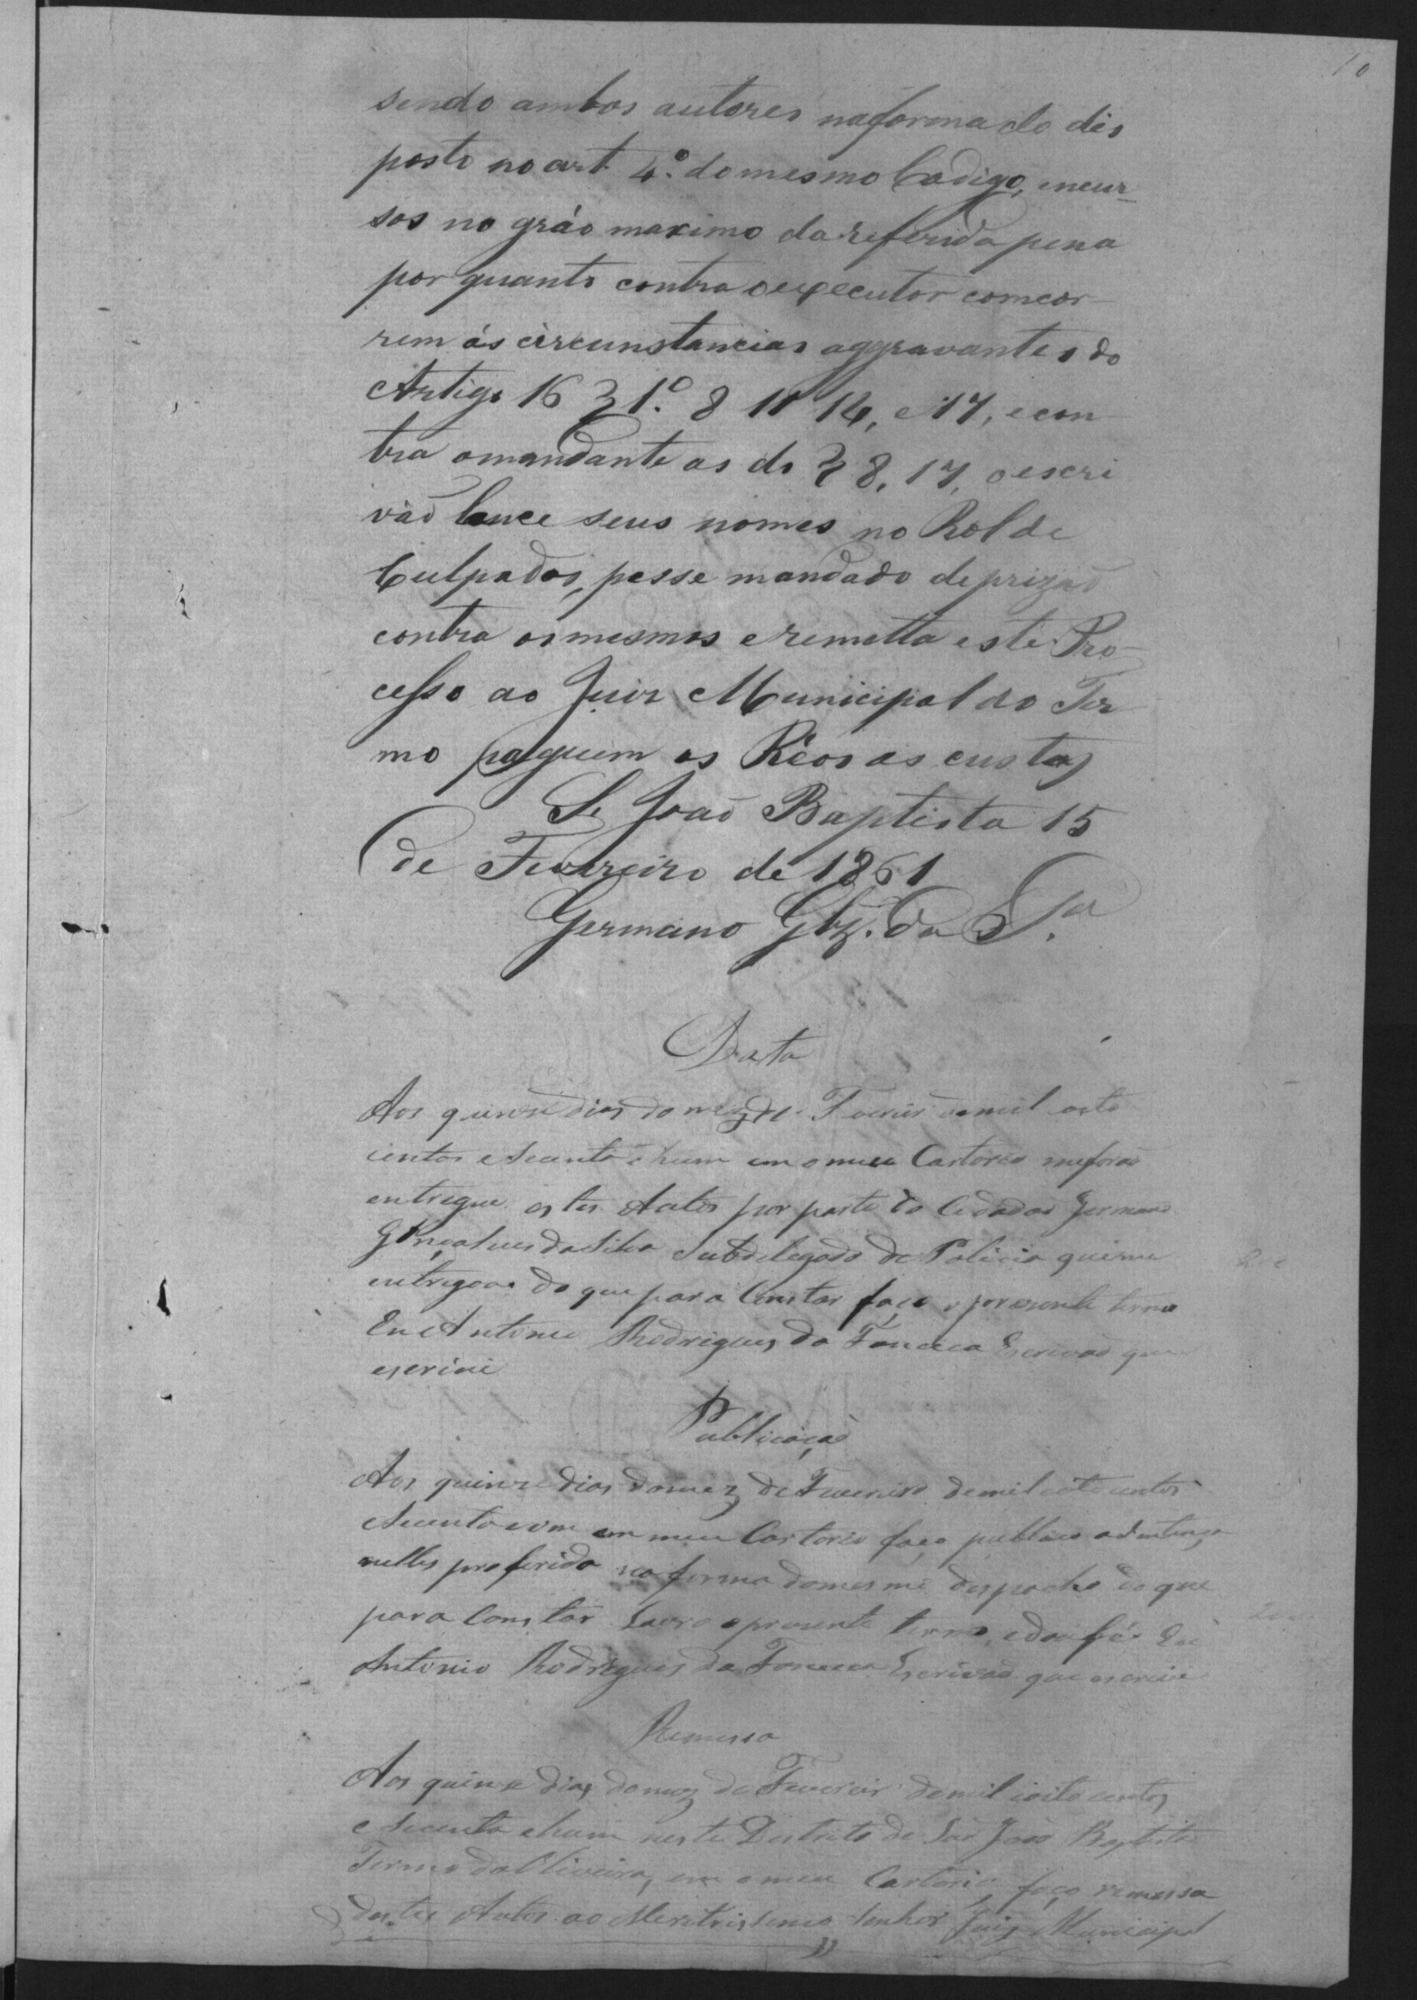 10
sendo ambos autores na forma do dis
posto no art. 4.º do mesmo Codigo, incur-
sos no gráo maximo da referida pena
por quanto contra o executor comcor-
rem ás circunstancias aggravantes do
Artigo 16 § 1.º 8 11 14, e 17, e con-
tra o mandante as do § 8, 17, o escri
vão lance seus nomes no Rol de
Culpados, passe mandado de prizaõ
contra os mesmos e remetta este Pro-
cesso ao Juiz Municipal do Ter
mo paguem os Réos as custas
S. Joaõ Baptista 15
de Fevereiro de 1861
Germano Glz. da S.ª
Data
Aos quinze dias do mez de Fevereiro de mil oito
centos e secenta e hum em o meu Cartorio me foraõ
entregue estes Autos por parte do Cidadaõ Germano
Gonçalves da Silva Subdelegado de Policia que me
entregou do que para Constar faço o presente termo
Eu Antonio Rodrigues da Fonceca Escrivaõ que
escrivi
Publicaçaõ
Aos quinze dias do mez de Fevereiro de mil oito centos
e secenta e um em meu Cartorio faço publico a sentença
nelles proferida na forma do mesmo despacho do que
para Constar Lavro o presente termo, e dou fé Eu
Antonio Rodrigues da Fonceca Escrivaõ que escrivi
Remessa
Aos quinze dias do mez de Fevereiro de mil oito centos
e secenta e hum neste Destrito de Saõ Joaõ Baptista
Termo da Oliveira, em o meu Cartorio faço remessa
destes Autos ao Meretrissimo Senhor Juiz Municipal